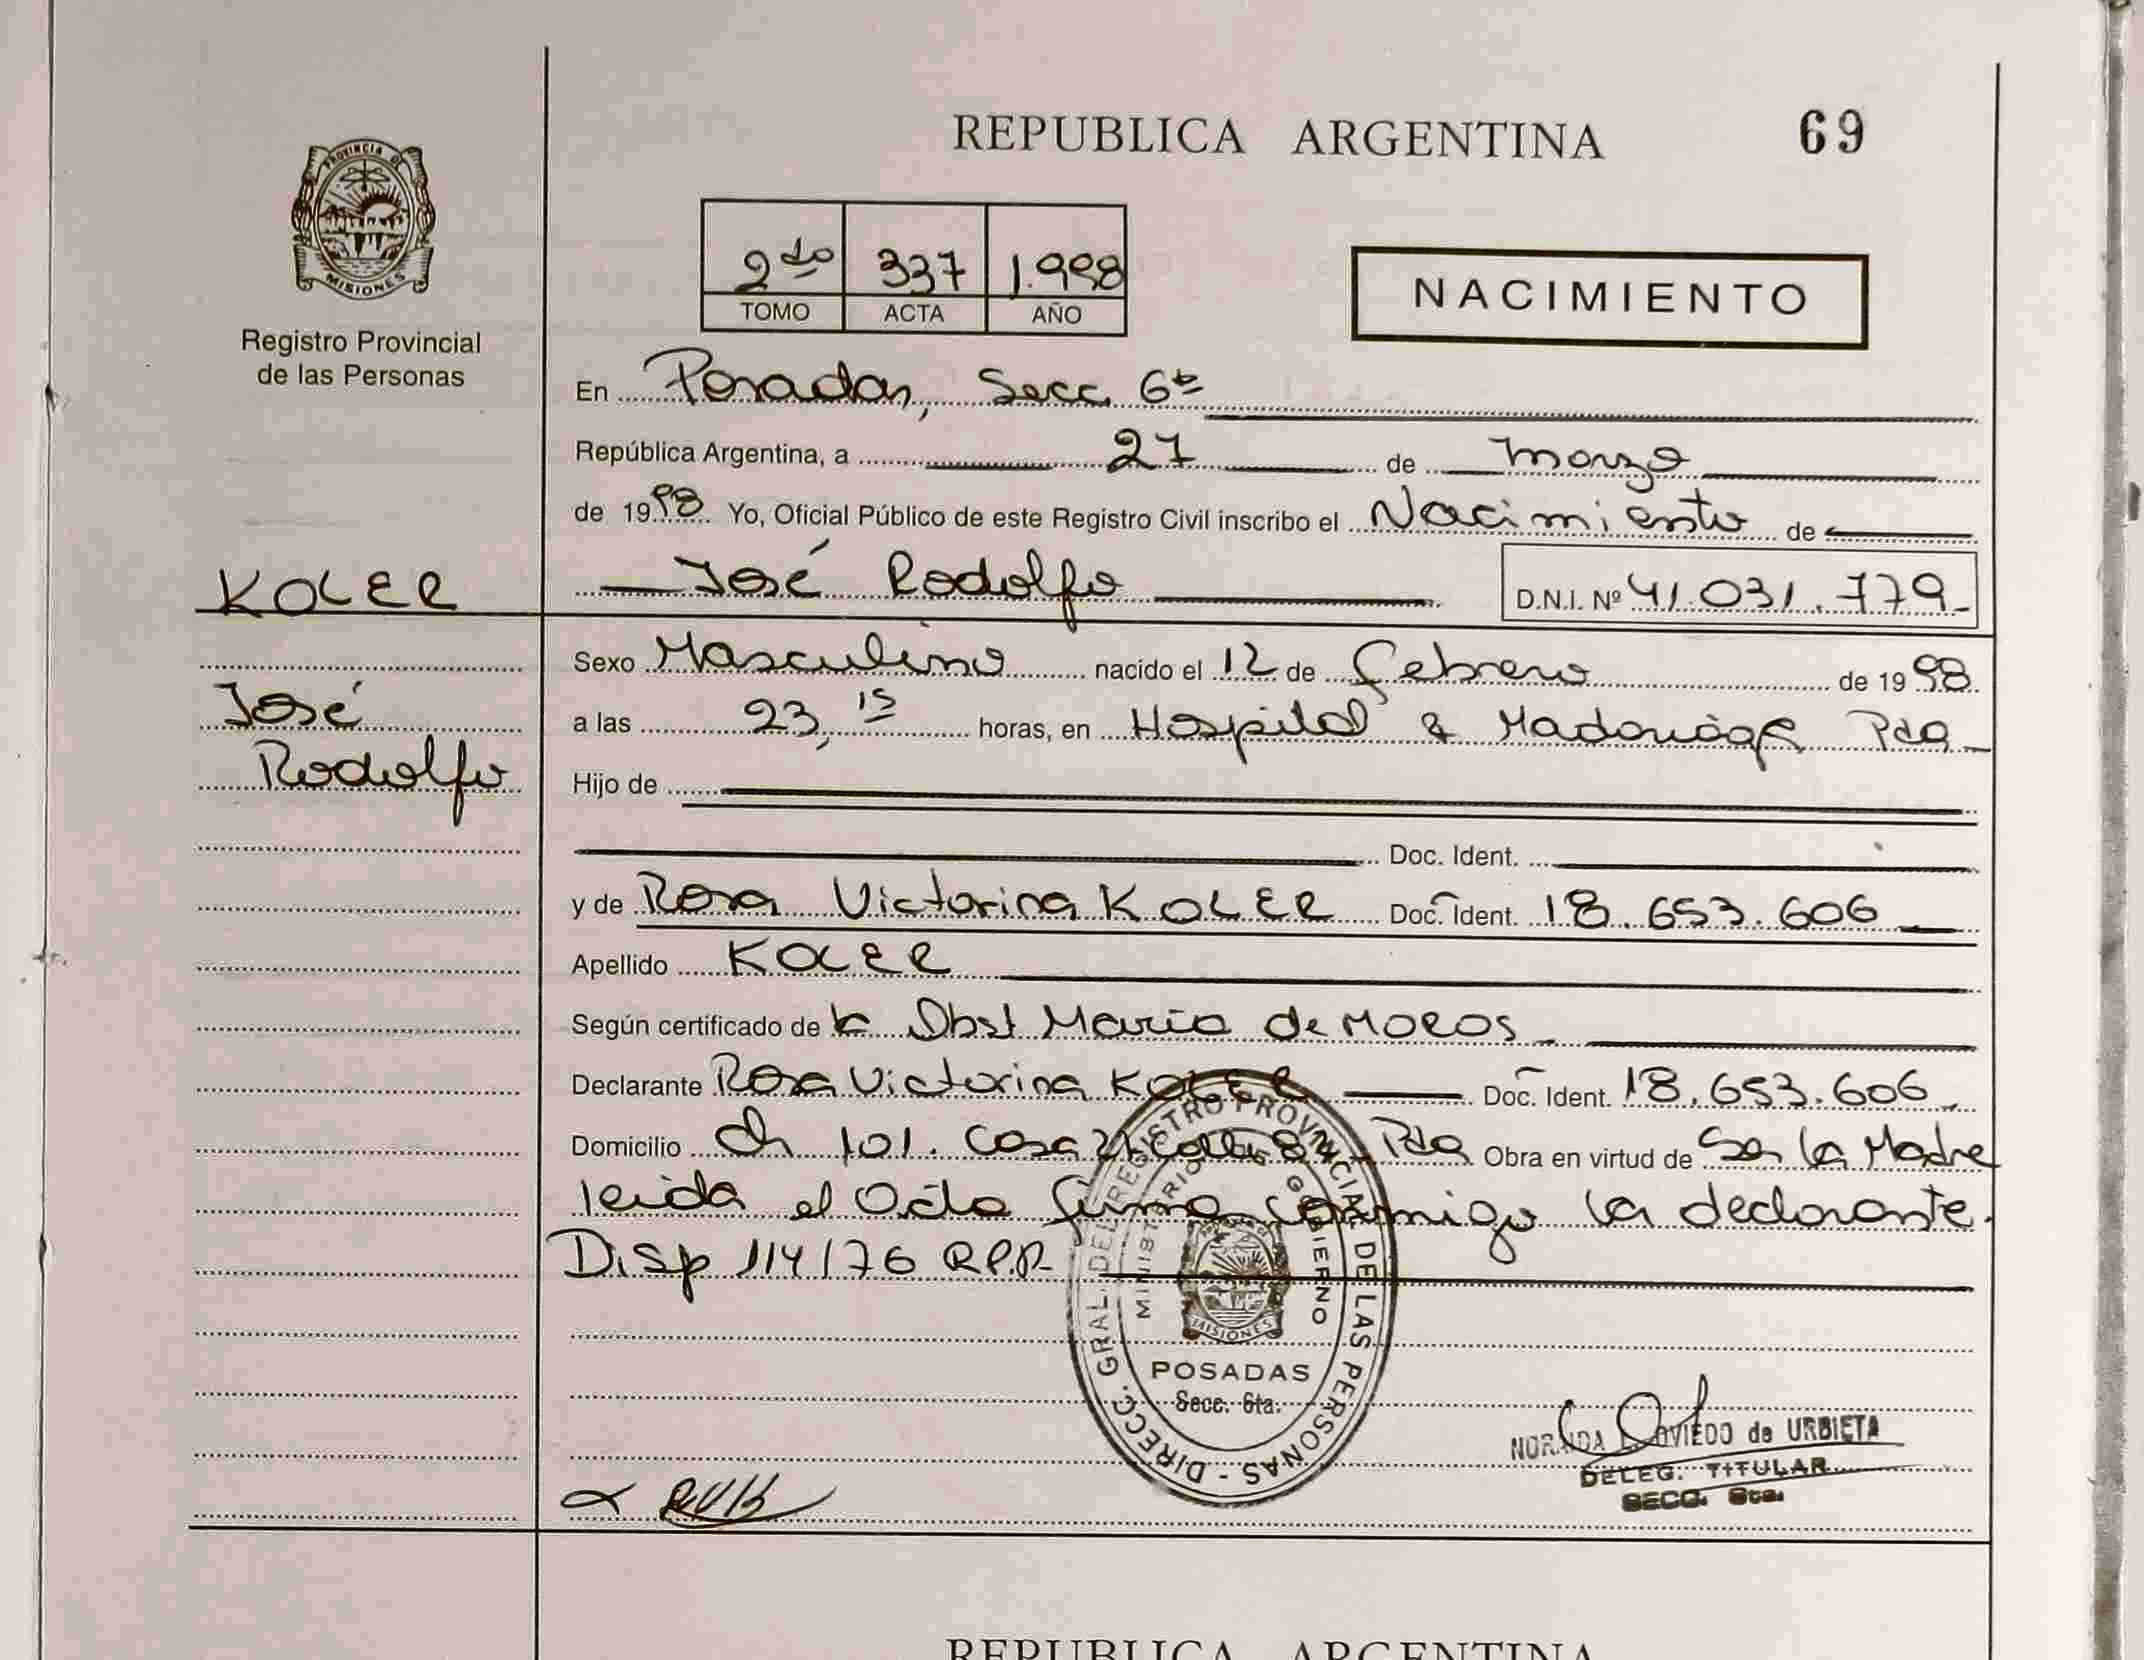 REPUBLICA ARGENTINA
69
PROVINCIA DE
MISIONES
Registro Provincial
de las Personas
2do 337 1.998
TOMO ACTA AÑO
NACIMIENTO
En Posadas, Secc. 6ta
República Argentina, a 27 de marzo
de 1998 Yo, Oficial Público de este Registro Civil inscribo el Nacimiento de
KOLER
José Rodolfo
D.N.I. Nº 41.031.779
Sexo Masculino nacido el 12 de febrero de 1998
José
Rodolfo
a las 23,15 horas, en Hospital R Madariaga Pda
Hijo de
Doc. Ident.
y de Rosa Victorina KOLER Doc. Ident. 18.653.606
Apellido KOLER
Según certificado de la Obst María de MOROS
Declarante Rosa Victorina KOLER Doc. Ident. 18.653.606
Domicilio Ch 101. Casa 21 calle Pda Obra en virtud de Ser la Madre
leida el Acta firma conmigo la declarante.
Disp 114/76 R.P.P.
DIRECC. GRAL. DEL REGISTRO PROVINCIAL DE LAS PERSONAS
MINISTERIO DE GOBIERNO
MISIONES
POSADAS
Secc. 6ta.
OVIEDO de URBIETA
DELEG. TITULAR
SECC. 6ta.
REPUBLICA ARGENTINA